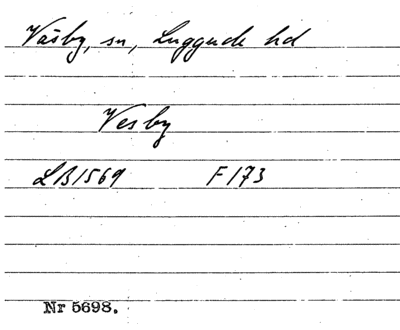 Väsby, sn, Luggude hd
Vesby
LB1569 F173
Nr 5698.